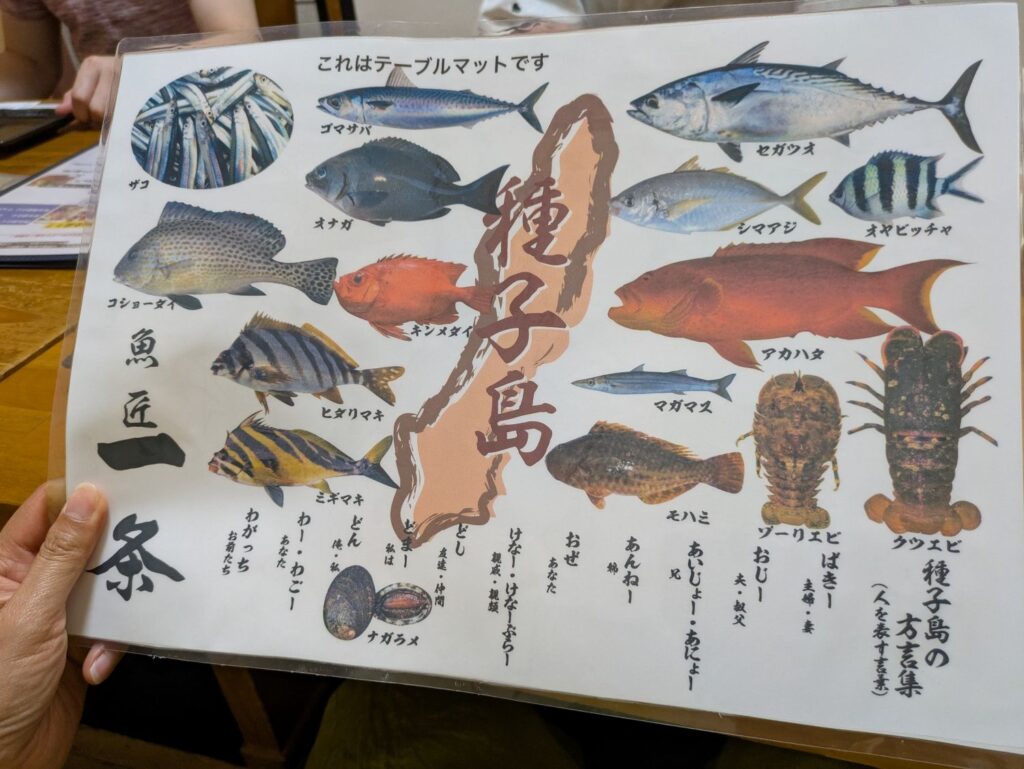 これはテーブルマットです
ザコ
ゴマサバ
セガツオ
オナガ
シマアジ
オヤビッチャ
コショーダイ
キンメダイ
アカハタ
ヒダリマキ
マガマス
ミギマキ
モハミ
ゾーリエビ
クツエビ
ナガラメ
種子島
魚匠一条
種子島の
方言集
(人を表す言葉)
ばきー
主婦・妻
おじー
夫・叔父
あいじょー・あにょー
兄
あんねー
姉
おぜ
あなた
けなー・けなーぶらー
親戚・親類
どし
友達・仲間
どまー
私は
どん
俺・私
わー・わごー
あなた
わがっち
お前たち